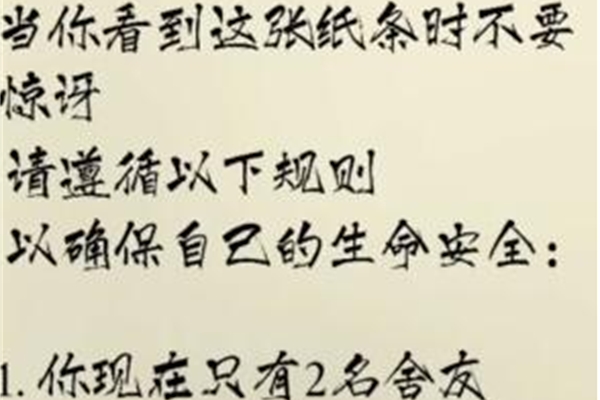 当你看到这张纸条时不要
惊讶
请遵循以下规则
以确保自己的生命安全：
1. 你现在只有2名舍友